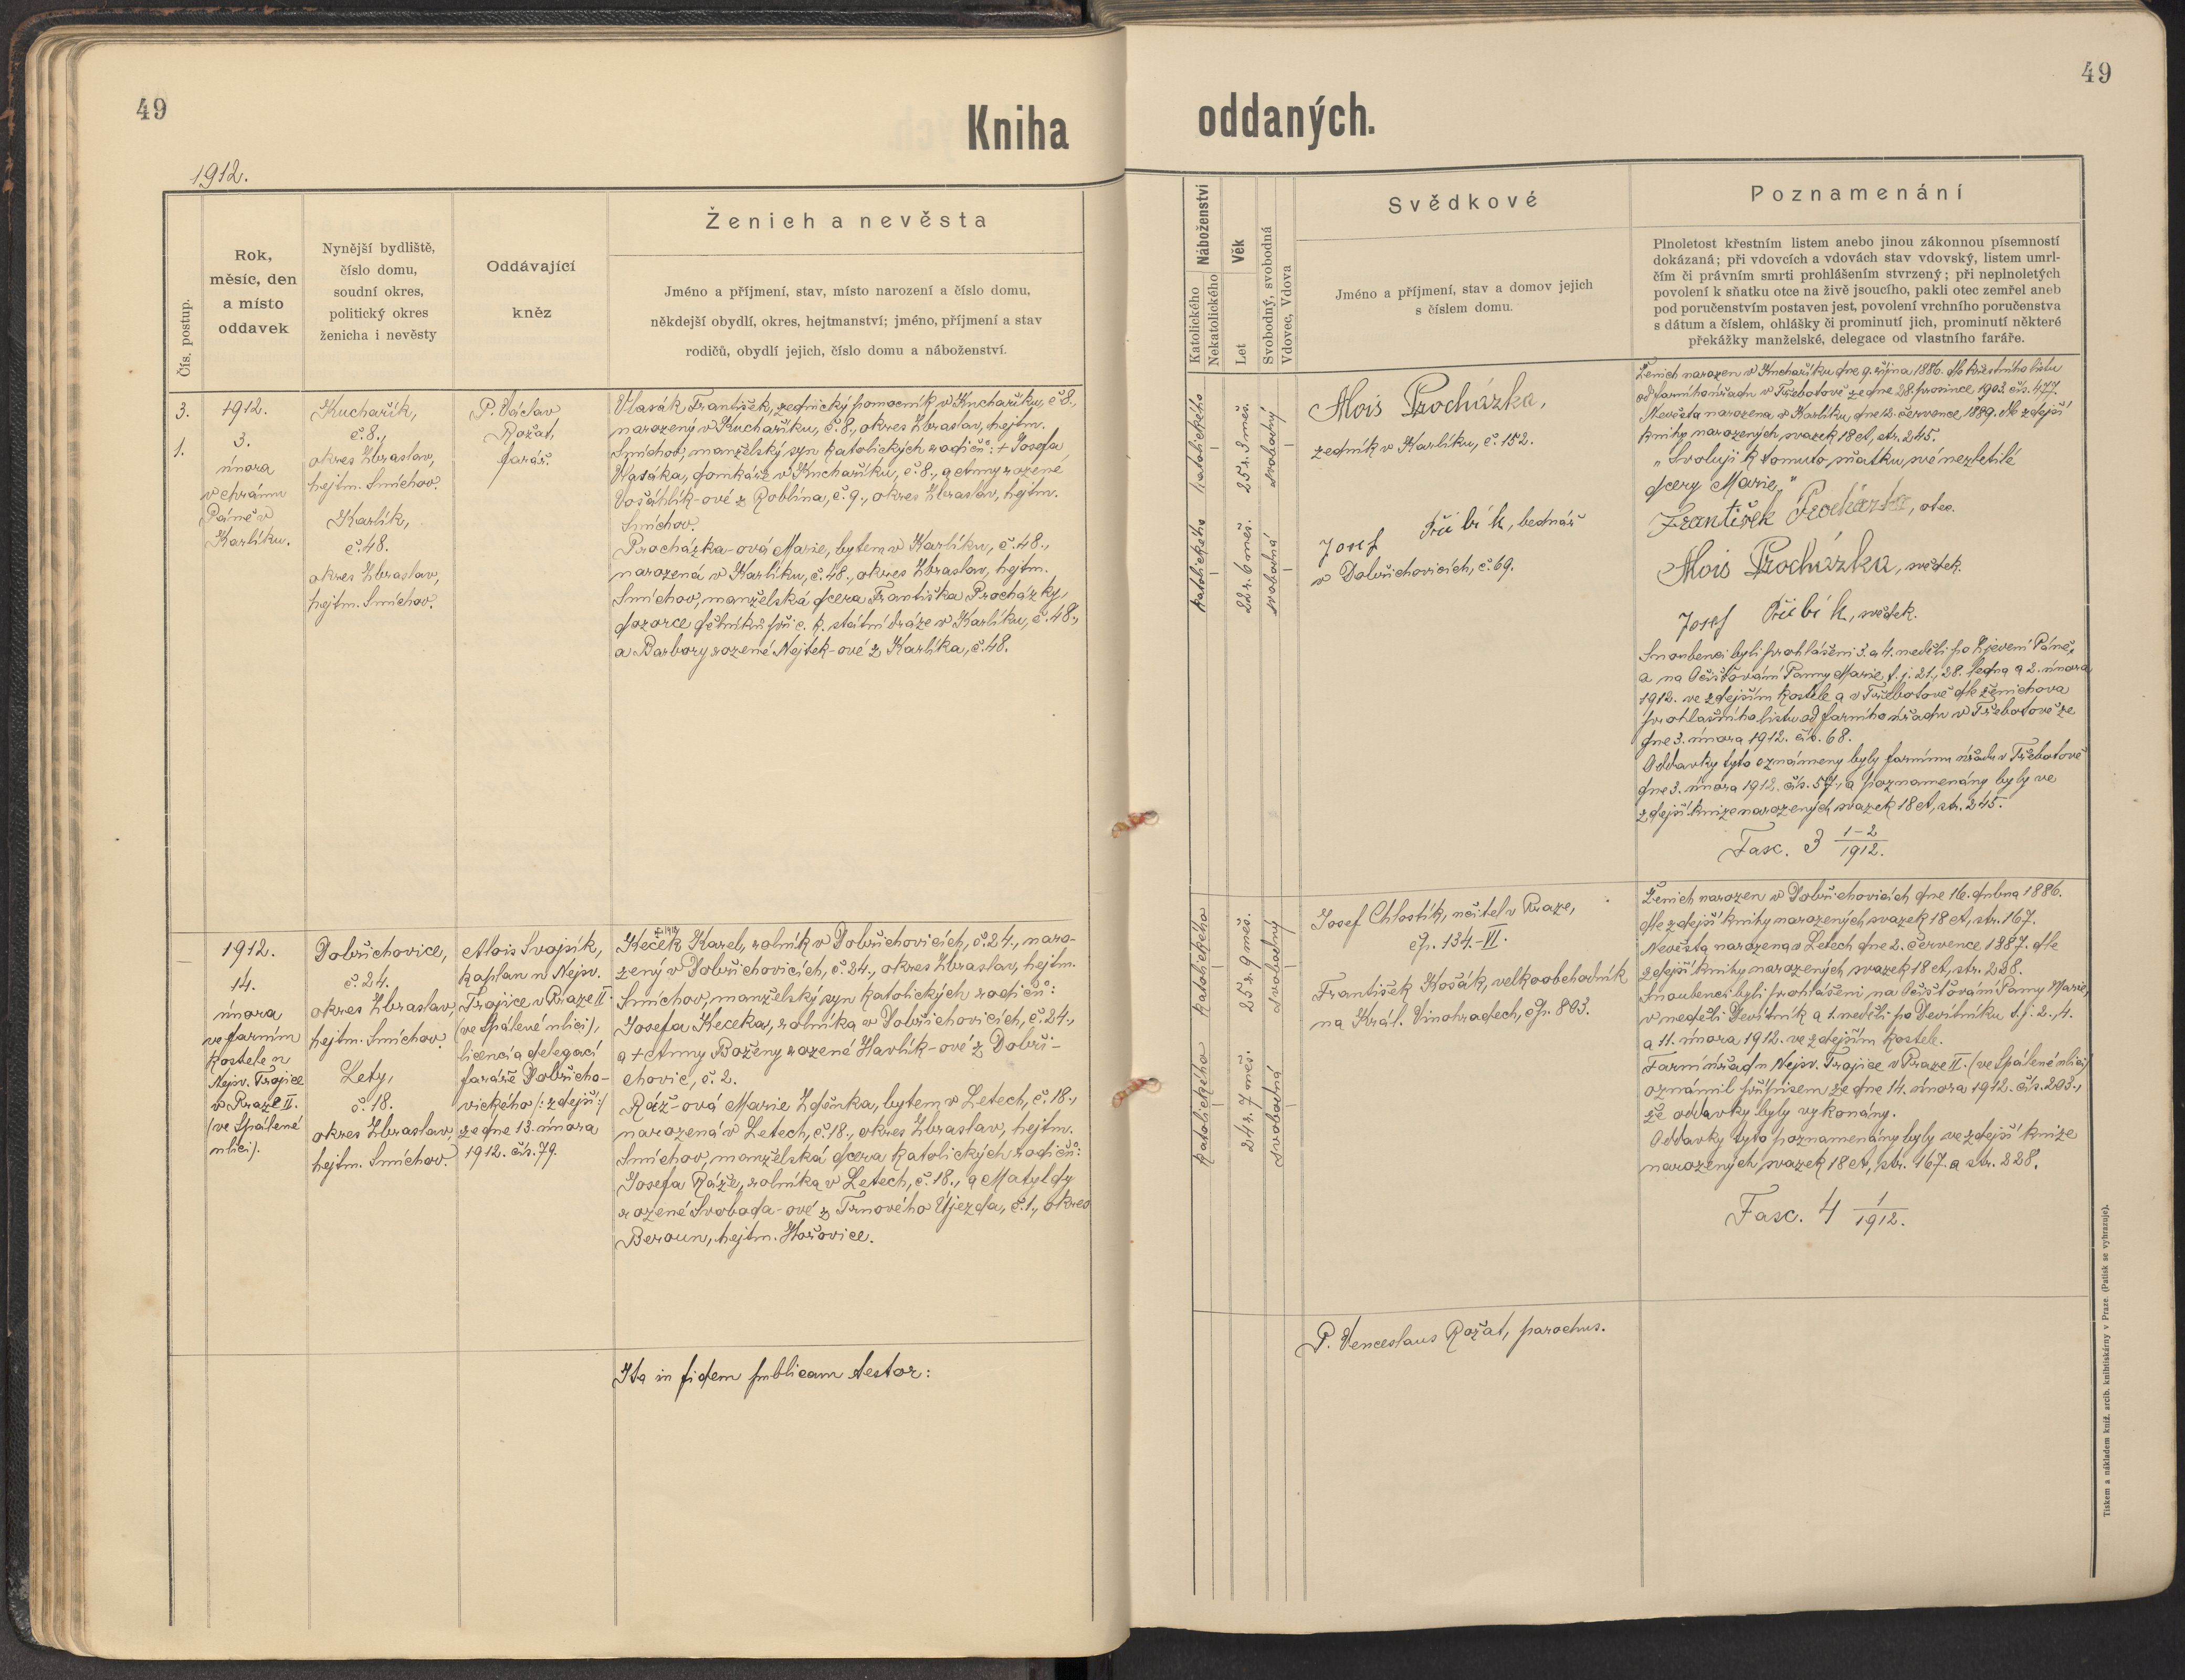 49
49
Kniha
oddaných.
1912.
Čís. postup.
Rok,
měsíc, den
a místo
oddavek
Nynější bydliště,
číslo domu,
soudní okres,
politický okres
ženicha i nevěsty
Oddávající
kněz
Ženich a nevěsta
Jméno a příjmení, stav, místo narození a číslo domu,
někdejší obydlí, okres, hejtmanství; jméno, příjmení a stav
rodičů, obydlí jejich, číslo domu a náboženství.
Náboženství
Katolického
Nekatolického
Věk
Let
Svobodný, svobodná
Vdovec, Vdova
Svědkové
Jméno a příjmení, stav a domov jejich
s číslem domu.
Poznamenání
Plnoletost křestním listem anebo jinou zákonnou písemností
dokázaná; při vdovcích a vdovách stav vdovský, listem umrl-
čím či právním smrti prohlášením stvrzený; při neplnoletých
povolení k sňatku otce na živě jsoucího, pakli otec zemřel aneb
pod poručenstvím postaven jest, povolení vrchního poručenstva
s dátum a číslem, ohlášky či prominutí jich, prominutí některé
překážky manželské, delegace od vlastního faráře.
3.
1.
1912.
3.
února
v chrámu
Páně v
Karlíku.
Kuchařík,
č. 8.,
okres Zbraslav,
hejtm. Smíchov.
Karlík,
č. 48.
okres Zbraslav,
hejtm. Smíchov.
P. Václav
Rožat,
farář.
Vlasák František, zednický pomocník v Kuchaříku, č. 8.,
narozený v Kuchaříku, č. 8., okres Zbraslav, hejtm.
Smíchov, manželský syn katolických rodičů: + Josefa
Vlasáka, domkáře v Kuchaříku, č. 8., a Anny rozené
Vošáhlík-ové z Roblína, č. 9., okres Zbraslav, hejtm.
Smíchov.
Procházka-ová Marie, bytem v Karlíku, č. 48.,
narozená v Karlíku, č. 48., okres Zbraslav, hejtm.
Smíchov, manželská dcera Františka Procházky,
dozorce dělníků při c. k. státní dráze v Karlíku, č. 48.,
a Barbory rozené Nejtek-ové z Karlíka, č. 48.
katolického
25 r. 3 měs.
svobodný
katolického
22 r. 6 měs.
svobodná
Alois Procházka,
zedník v Karlíku, č. 152.
Josef Přibík, bednář
v Dobřichovicích, č. 69.
Ženich narozen v Kuchaříku dne 9. října 1886. dle křestního listu
od farního úřadu v Třebotově ze dne 28. prosince 1903. čís. 477.
Nevěsta narozena v Karlíku, dne 12. července 1889. dle zdejší
knihy narozených, svazek 18 A, str. 245.
„Svoluji k tomuto sňatku své nezletilé
dcery Marie.“
František Procházka, otec.
Alois Procházka, svědek.
Josef Přibík, svědek.
Snoubenci byli prohlášeni 3. a 4. neděli po Zjevení Páně,
a na Očišťování Panny Marie, t. j. 21., 28. ledna a 2. února
1912. ve zdejším kostele a v Třebotově dle ženichova
prohlašního listu od farního úřadu v Třebotově ze
dne 3. února 1912. čís. 68.
Oddavky tyto oznámeny byly farnímu úřadu v Třebotově
dne 3. února 1912. čís. 57., a poznamenány byly ve
zdejší knize narozených, svazek 18 A, str. 245.
Fasc. 3 1-2/1912.
1912.
14.
února
ve farním
kostele u
Nejsv. Trojice
v Praze II.
(ve Spálené
ulici).
Dobřichovice,
č. 24.
okres Zbraslav,
hejtm. Smíchov.
Lety,
č. 18.
okres Zbraslav,
hejtm. Smíchov.
Alois Svojsík,
kaplan u Nejsv.
Trojice v Praze II.
(ve Spálené ulici),
licencí a delegací
faráře Dobřicho-
vického /: zdejší :/
ze dne 13. února
1912. čís. 79.
Keček Karel, rolník v Dobřichovicích, č. 24., naro-
zený v Dobřichovicích, č. 24., okres Zbraslav, hejtm.
Smíchov, manželský syn katolických rodičů:
Josefa Kečeka, rolníka v Dobřichovicích, č. 24.,
a + Anny Boženy rozené Havlík-ové z Dobři-
chovic, č. 2.
Ráž-ová Marie Zdeňka, bytem v Letech, č. 18.,
narozená v Letech, č. 18., okres Zbraslav, hejtm.
Smíchov, manželská dcera katolických rodičů:
Josefa Ráže, rolníka v Letech, č. 18., a Matyldy
rozené Svoboda-ové z Trnového Újezda, č. 1., okres
Beroun, hejtm. Hořovice.
katolického
25 r. 9 měs.
svobodný
katolického
24 r. 7 měs.
svobodná
Josef Chlostík, učitel v Praze,
čp. 134.-VI.
František Košák, velkoobchodník
na Král. Vinohradech, čp. 803.
Ženich narozen v Dobřichovicích dne 16. dubna 1886.
dle zdejší knihy narozených, svazek 18 A, str. 167.
Nevěsta narozena v Letech dne 2. července 1887. dle
zdejší knihy narozených, svazek 18 A, str. 228.
Snoubenci byli prohlášeni na Očišťování Panny Marie,
v neděli Devítník a 1. neděli po Devítníku t. j. 2., 4.
a 11. února 1912. ve zdejším kostele.
Farní úřad u Nejsv. Trojice v Praze II. (ve Spálené ulici)
oznámil přípisem ze dne 14. února 1912. čís. 293.,
že oddavky byly vykonány.
Oddavky tyto poznamenány byly ve zdejší knize
narozených, svazek 18 A, str. 167. a str. 228.
Fasc. 4 1/1912.
Ita in fidem publicam testor:
P. Venceslaus Rožat, parochus.
Tiskem a nákladem kníž. arcib. knihtiskárny v Praze. (Patisk se vyhrazuje).